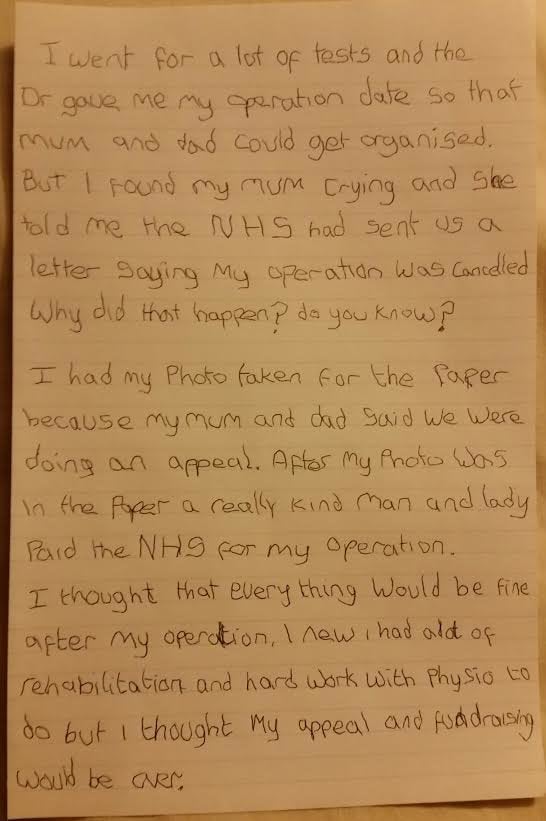 I went for a lot of tests and the
Dr gave me my operation date so that
mum and dad could get organised.
But I found my mum crying and she
told me the NHS had sent us a
letter saying my operation was cancelled
Why did that happen? do you know?
I had my Photo taken for the Paper
because my mum and dad said we were
doing an appeal. After my Photo was
in the Paper a really kind man and lady
Paid the NHS for my operation.
I thought that everything would be fine
after my operation, I new i had alot of
rehabilitation and hard work with Physio to
do but i thought my appeal and fundraising
would be over.